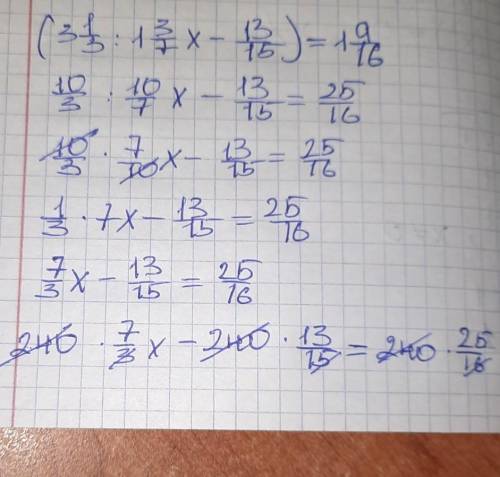 (3 1/3 : 1 3/7 x − 13/15) = 1 9/16
10/3 : 10/7 x − 13/15 = 25/16
10/3 · 7/10 x − 13/15 = 25/16
1/3 · 7x − 13/15 = 25/16
7/3 x − 13/15 = 25/16
240 · 7/3 x − 240 · 13/15 = 240 · 25/16